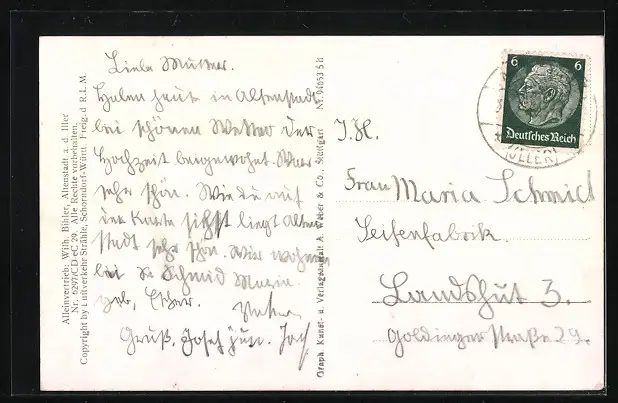 Alleinvertrieb: Wilh. Bihler, Altenstadt a. d. Iller
Nr. 6297/CD eC 29. Alle Rechte vorbehalten.
Copyright by Luftverkehr Strähle, Schorndorf-Württ. Freig. d. R.L.M.
Liebe Mutter.
Haben heute in Altenstadt
bei schönen Wetter der
Hochzeit beigewohnt. War
sehr schön. Wie du auf
der Karte siehst liegt Alten-
stadt sehr schön. Wir wohnen
bei Schmid Maria
geb.
Gruß. Josef jun.
Graph. Kunst- u. Verlagsanstalt A. Weber & Co., Stuttgart Nr. 04653 5 h
6 6
Deutsches Reich
(ILLER)
I. H.
Frau Maria Schmid
Seifenfabrik.
Landshut 3.
Goldingerstraße 29.